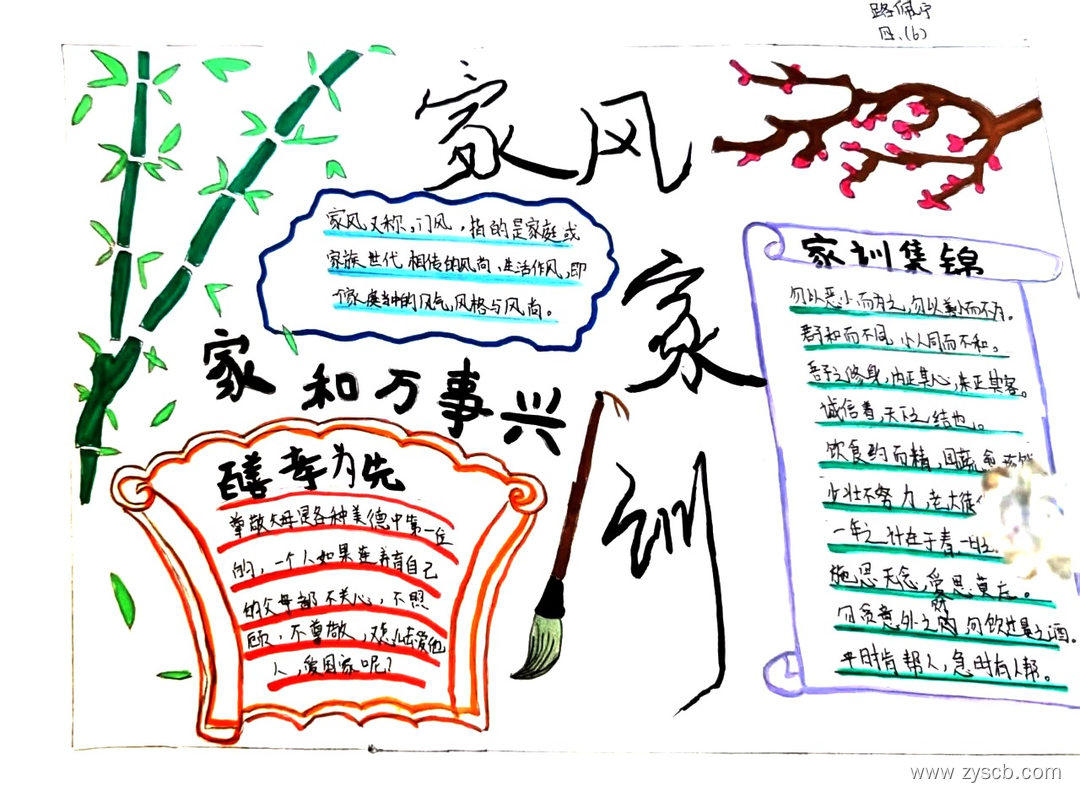 路佩宁
四.(6)
家风
家训
家风又称门风,指的是家庭或
家族世代相传的风尚,生活作风,即
个家庭当中的风气,风格与风尚。
家和万事兴
百善孝为先
尊敬父母是各种美德中第一位
的,一个人如果连养育自己
的父母都不关心,不照
顾,不尊敬,难以去爱他
人,爱国家呢?
家训集锦
勿以恶小而为之,勿以善小而不为。
君子和而不同,小人同而不和。
吾子之修身,内正其心,末正其客。
诚信者,天下之结也。
饮食约而精,园蔬愈
少壮不努力,老大徒
一年之计在于春,一日之
施恩无念,受恩莫忘。
勿贪意外之财,勿饮过量之酒。
平时肯帮人,急时有人帮。
www.zyscb.com